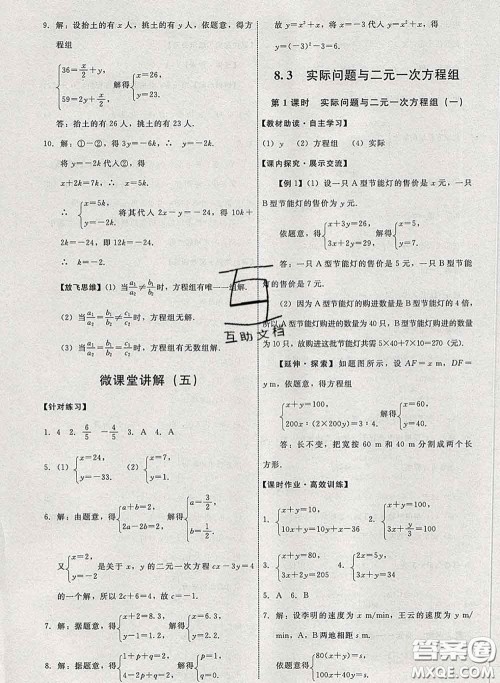 9. 解：设抬土的有 x 人，挑土的有 y 人，依题意，得方程组
{36=x/2+y, 59=2y+x/2. 解得{x=26, y=23.
答：抬土的有 26 人，挑土的有 23 人．
10. 解：①－②，得 y＝－2k.
将 y＝－2k 代人②，得
x+2k＝7k，x＝5k.
∴ {x=5k, y=－2k. 将其代人 2x－y＝－24，得 10k+2k＝－24，k＝－2.
∴ {x=－10, y=4.
【放飞思维】(1) 当 a₁/a₂≠b₁/b₂ 时，方程组有唯一一组解.
(2) 当 a₁/a₂=b₁/b₂≠c₁/c₂ 时，方程组无解.
(3) 当 a₁/a₂=b₁/b₂=c₁/c₂ 时，方程组有无数组解.
微课堂讲解（五）
【针对练习】
1. 4 2. 6/5 －4/5 3. A 4. A
5. (1) {x=24, y=7. (2) {x=－33, y=－7.
6. 解：由题意，得{a+b=2, a－b=1. 解得{a=3/2, b=1/2.
又{x=2, y=－4 是关于 x，y 的二元一次方程 cx－3y=4 的解，∴ 2c+12=4，故 c=－4.
7. 解：据题意，得{x+2=8.3, y－1=1.2. 解得{x=6.3, y=2.2.
8. 解：据题意，得{1+p+q=2, 4+2p+q=2. 解得{p=－3, q=4.
故 y＝x²－3x＋4，将 x＝－3 代人 y＝x²＋x，得
y＝(－3)²－3＝6.
8.3 实际问题与二元一次方程组
第 1 课时 实际问题与二元一次方程组（一）
【教材助读·自主学习】
(1) y (2) 方程组 (4) 实际
【课内探究·展示交流】
【例 1】(1) 设一只 A 型节能灯的售价是 x 元，一只 B 型节能灯的售价为 y 元．
依题意，得{x+3y=26, 3x+2y=29. 解得{x=5, y=7.
答：一只 A 型节能灯的售价是 5 元，一只 B 型节能灯的售价是 7 元．
(2) 因为 A 型节能灯的购进数量为 B 型节能灯的 4 倍，所以 A 型节能灯的购进数量为 40 只，B 型节能灯的购进数量为 10 只，故购进这批节能灯共需 5×40+7×10=270（元）.
【延伸·探索】如题图所示，设 AM，DF 为 x m，y m，依题意，得方程组
{x+y=100, 200x∶(2×200y)=3∶4. 解得{x=60, y=40.
答：长不变，把宽按 60 m 和 40 m 分成两个长方形．
【课时作业·高效训练】
1. {x+y=10, 10x+y=36 2. {x+y=100, 10x+4y=856
3. {x+y=50, 3x+2y=120 4. {2x=5y, 3x+y=34
5. A 6. B
7. 解：设李明的速度为 x m/min，王云的速度为 y m/min，A、B 两地相距 s m.
依题意，得{80(x+y)=s, 60x=80y. 解得
互助文档
答案圈
MXQE.COM